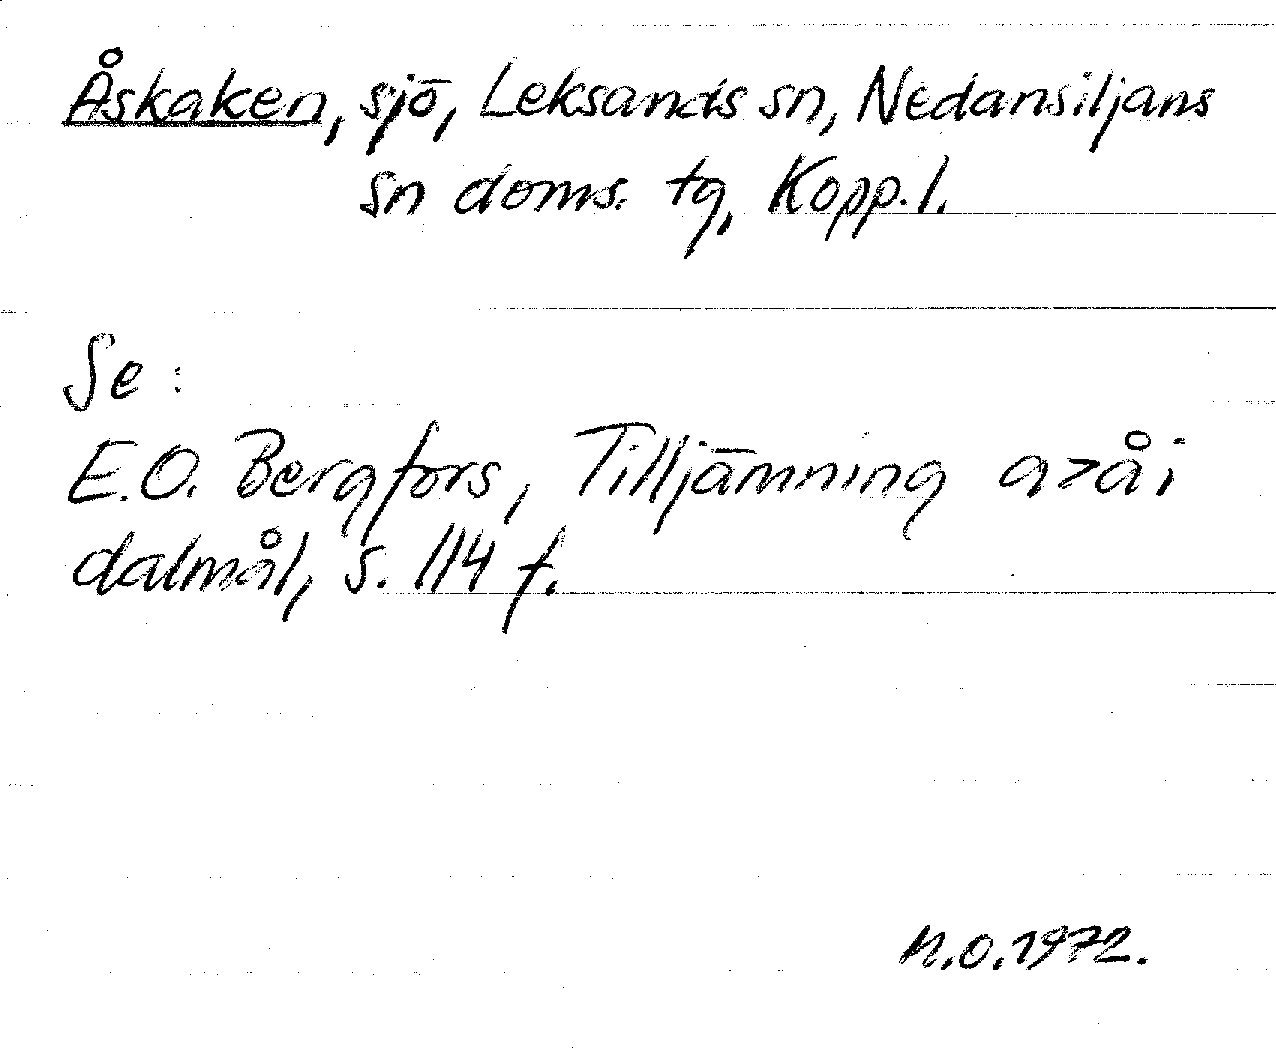 Åskaken, sjö, Leksands sn, Nedansiljans
sn doms. tg, Kopp. l.
Se:
E.O. Bergfors, Tilljämning a>å i
dalmål, s. 114 f.
M.O. 1972.